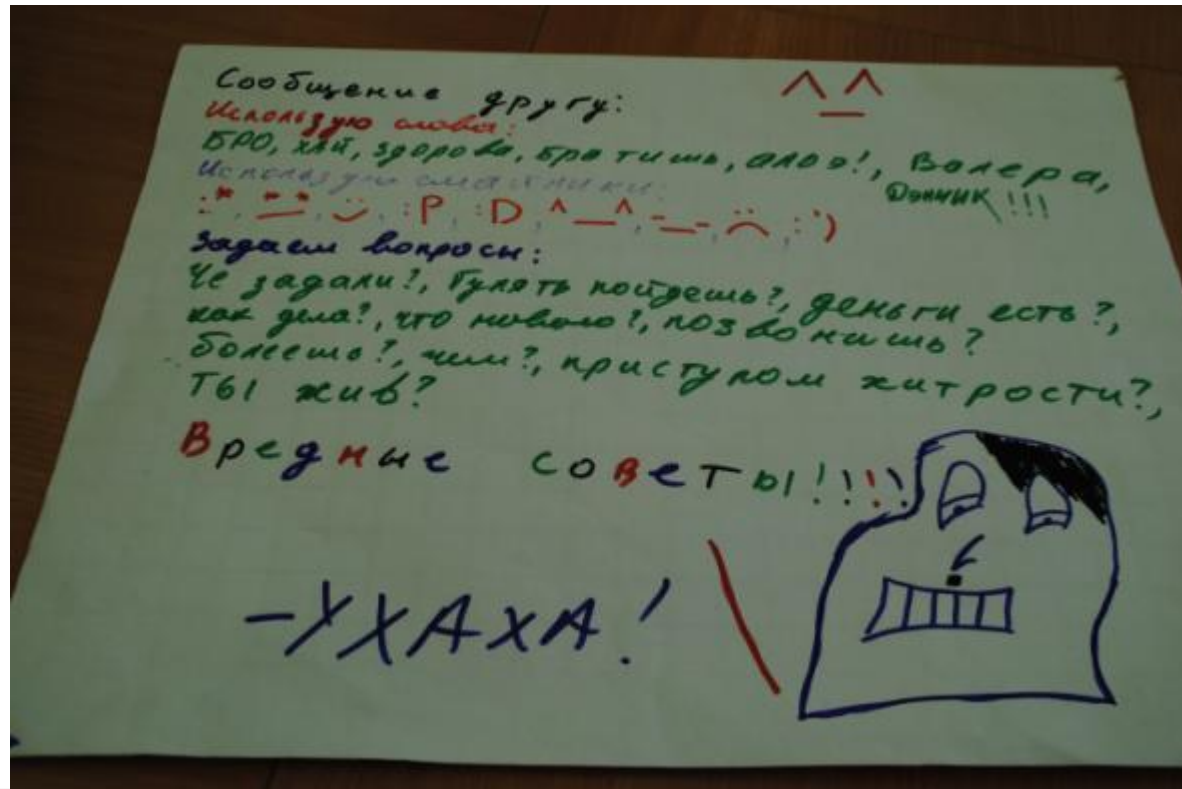 Сообщение другу: ^_^
Использую слова:
БРО, хай, здорова, братишь, алоэ!, Валера,
Используем смайлики:
:*, *_*, :P, :D ^__^, -_-, :')
Задаем вопросы:
Че задали?, Гулять пойдешь?, деньги есть?,
как дела?, что нового?, позвонишь?
болеешь?, чем?, приступом хитрости?,
Ты жив?
Вредные советы!!!!!
-УХАХА!